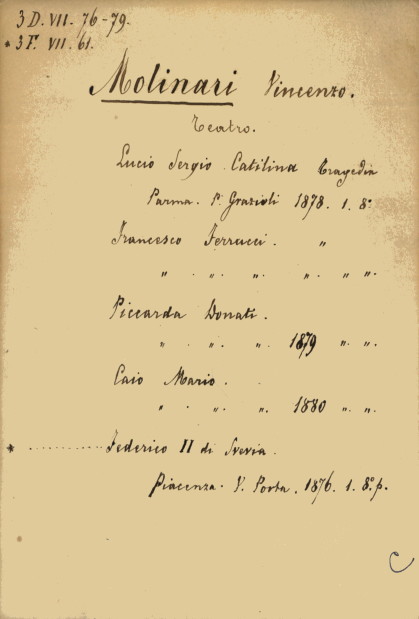 3 D. VII. 76-79.
* 3 F. VII. 61.
Molinari Vincenzo.
Teatro.
Lucio Sergio Catilina Tragedia
Parma. P. Grazioli 1878. 1. 8º
Francesco Ferrucci. „
„ . „ . „ . „ . „ „.
Piccarda Donati.
„ . „ . „ 1879 „. „.
Caio Mario.
„ . „ . „. 1880 „. „.
* .......... Federico II di Svevia.
Piacenza. V. Porta. 1876. 1. 8º. p.
C